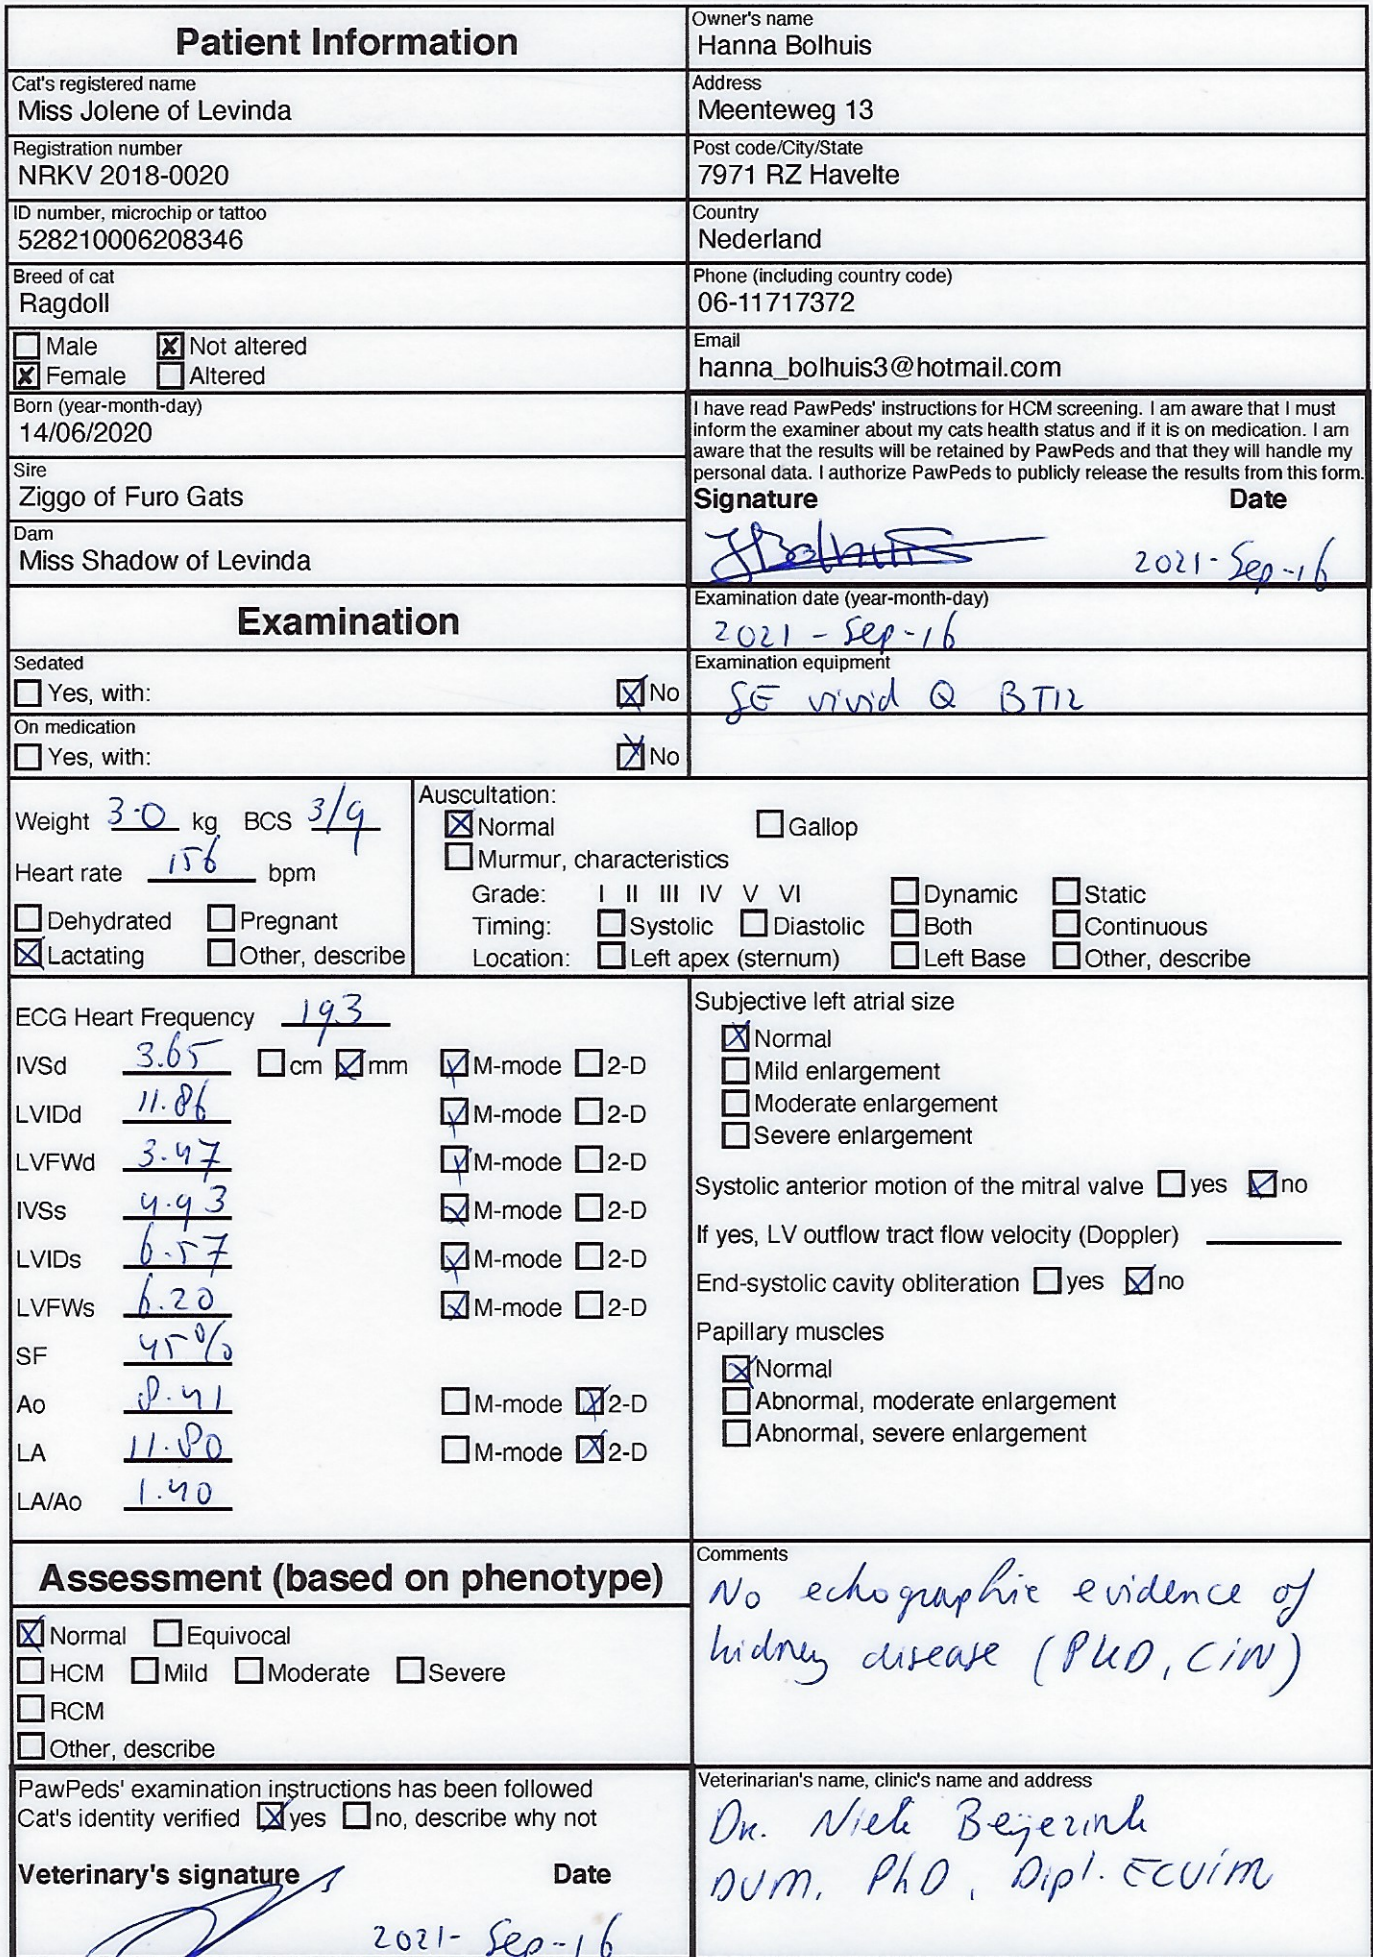 Patient Information
Owner's name
Hanna Bolhuis
Cat's registered name
Miss Jolene of Levinda
Address
Meenteweg 13
Registration number
NRKV 2018-0020
Post code/City/State
7971 RZ Havelte
ID number, microchip or tattoo
528210006208346
Country
Nederland
Breed of cat
Ragdoll
Phone (including country code)
06-11717372
Male Not altered
Female Altered
Email
hanna_bolhuis3@hotmail.com
Born (year-month-day)
14/06/2020
Sire
Ziggo of Furo Gats
Dam
Miss Shadow of Levinda
I have read PawPeds' instructions for HCM screening. I am aware that I must
inform the examiner about my cats health status and if it is on medication. I am
aware that the results will be retained by PawPeds and that they will handle my
personal data. I authorize PawPeds to publicly release the results from this form.
Signature Date
HBolhuis 2021-Sep-16
Examination
Examination date (year-month-day)
2021-Sep-16
Sedated
Yes, with: No
Examination equipment
GE vivid Q BT12
On medication
Yes, with: No
Weight 3.0 kg BCS 3/9
Heart rate 156 bpm
Dehydrated Pregnant
Lactating Other, describe
Auscultation:
Normal Gallop
Murmur, characteristics
Grade: I II III IV V VI Dynamic Static
Timing: Systolic Diastolic Both Continuous
Location: Left apex (sternum) Left Base Other, describe
ECG Heart Frequency 193
IVSd 3.65 cm mm M-mode 2-D
LVIDd 11.86 M-mode 2-D
LVFWd 3.47 M-mode 2-D
IVSs 4.93 M-mode 2-D
LVIDs 6.57 M-mode 2-D
LVFWs 6.20 M-mode 2-D
SF 45%
Ao 8.41 M-mode 2-D
LA 11.80 M-mode 2-D
LA/Ao 1.40
Subjective left atrial size
Normal
Mild enlargement
Moderate enlargement
Severe enlargement
Systolic anterior motion of the mitral valve yes no
If yes, LV outflow tract flow velocity (Doppler)
End-systolic cavity obliteration yes no
Papillary muscles
Normal
Abnormal, moderate enlargement
Abnormal, severe enlargement
Assessment (based on phenotype)
Normal Equivocal
HCM Mild Moderate Severe
RCM
Other, describe
Comments
No echographic evidence of
kidney disease (PKD, CiN)
PawPeds' examination instructions has been followed
Cat's identity verified yes no, describe why not
Veterinary's signature Date
2021-Sep-16
Veterinarian's name, clinic's name and address
Dr. Niek Beijerink
DVM, PhD, Dipl. ECVIM